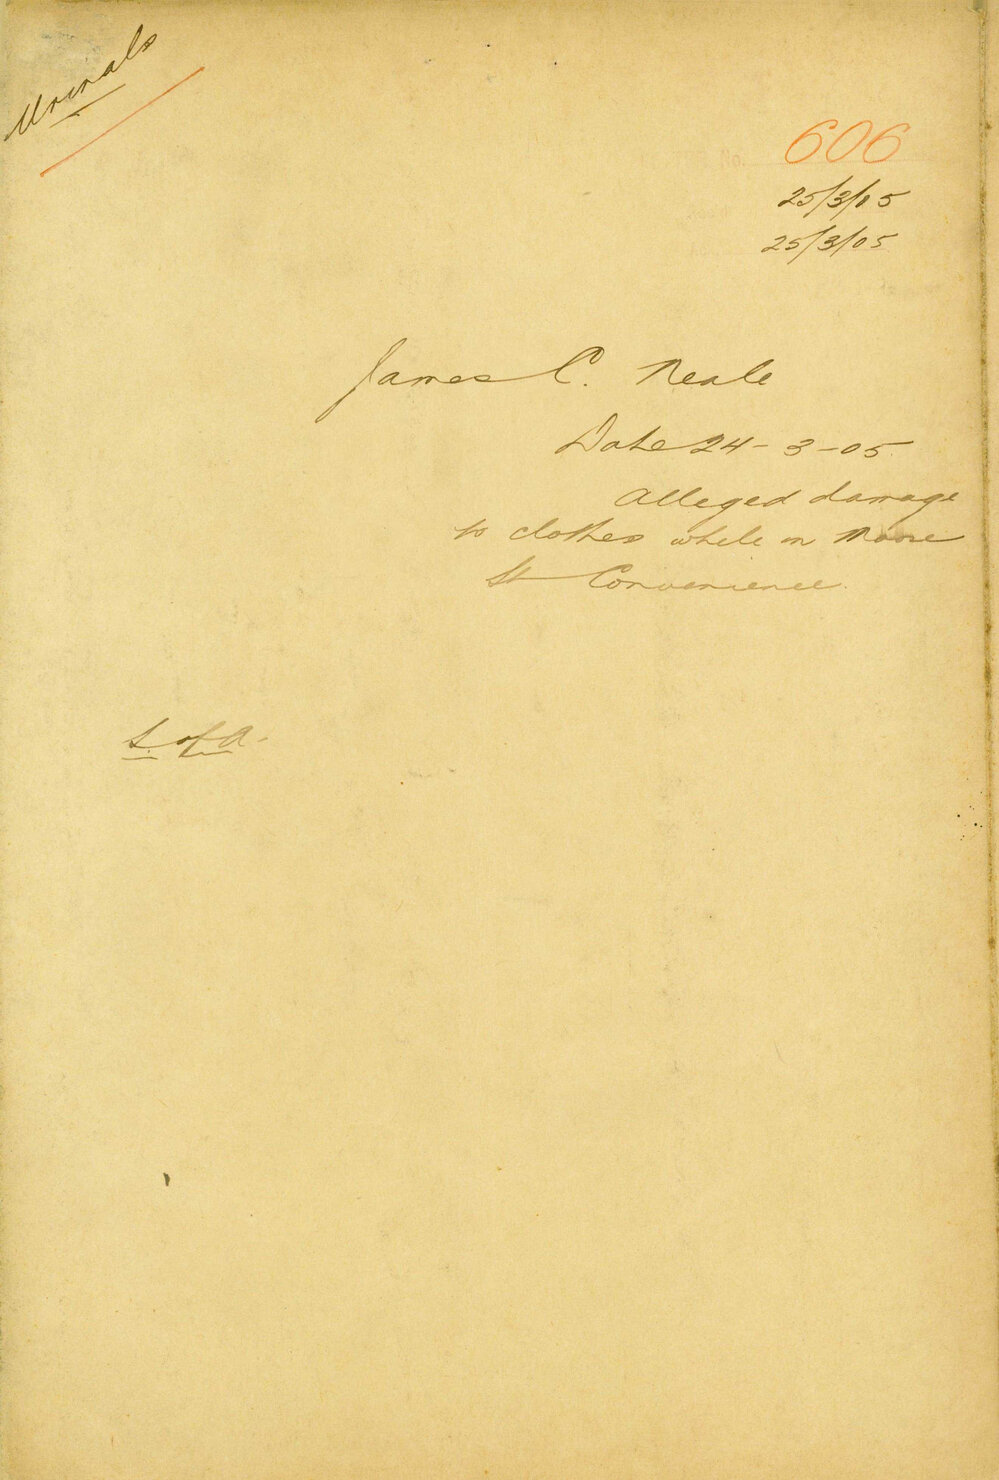 Urinals
606
25/3/05
25/3/05
James C. Neale
Date 24-3-05
Alleged damage
to clothes while in Moore
St Convenience.
S. of A.